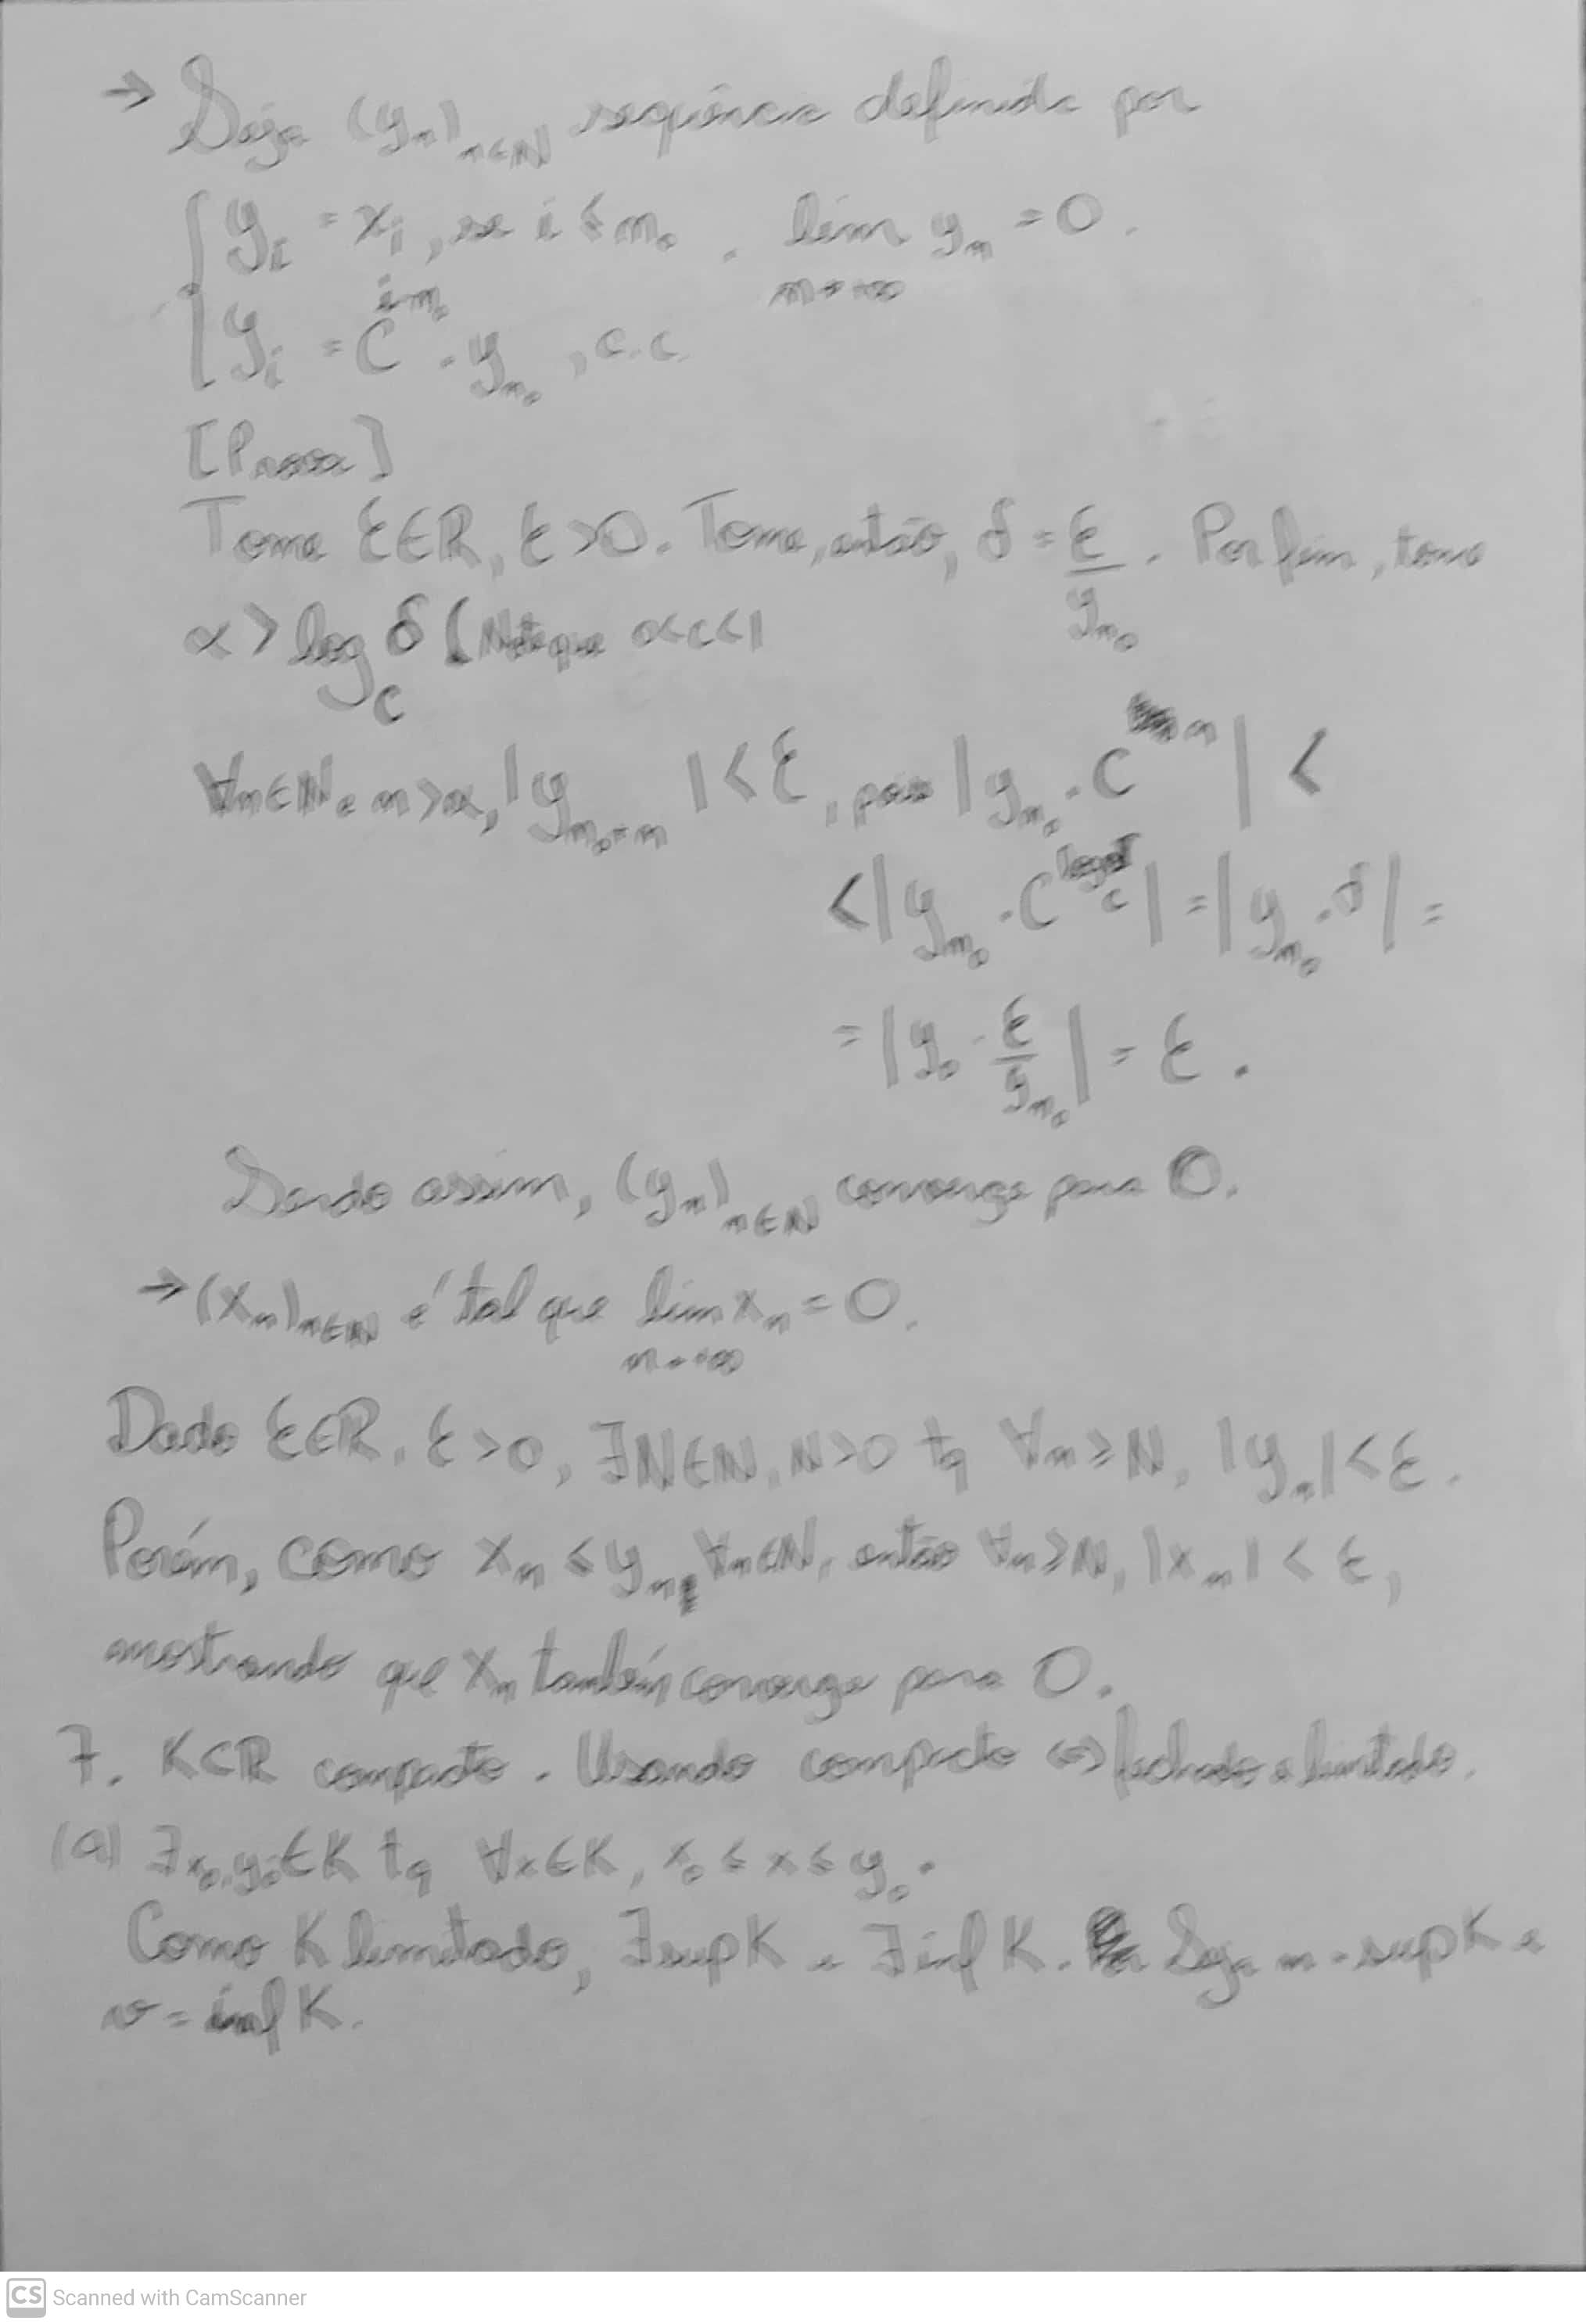 → Seja (yₙ)ₙ∈ℕ sequência definida por
{ yᵢ = xᵢ, se i ≤ n₀ . lim yₙ = 0.
n→+∞
{ yᵢ = C^(i-n₀) · yₙ₀ , c.c.
[Prova]
Tome ε∈ℝ, ε>0. Tome, então, δ = ε/yₙ₀ . Por fim, tome
α > log_C δ (Note que 0<C<1
∀n∈ℕ e n>α, |yₙ₀₊ₙ| < ε, pois |yₙ₀ · Cⁿ| <
< |yₙ₀ · C^(log_C δ)| = |yₙ₀ · δ| =
= |y₀ · ε/yₙ₀| = ε .
Sendo assim, (yₙ)ₙ∈ℕ converge para 0.
→ (xₙ)ₙ∈ℕ é tal que lim xₙ = 0.
n→+∞
Dado ε∈ℝ, ε>0, ∃N∈ℕ, N>0 tq ∀n≥N, |yₙ|<ε.
Porém, como xₙ ≤ yₙ, ∀n∈ℕ, então ∀n≥N, |xₙ| < ε,
mostrando que xₙ também converge para 0.
7. K⊂ℝ compacto. Usando compacto ⇔ fechado e limitado.
(a) ∃x₀,y₀∈K tq ∀x∈K, x₀ ≤ x ≤ y₀.
Como K limitado, ∃sup K e ∃inf K. Seja = sup K e
v = inf K.
CS Scanned with CamScanner